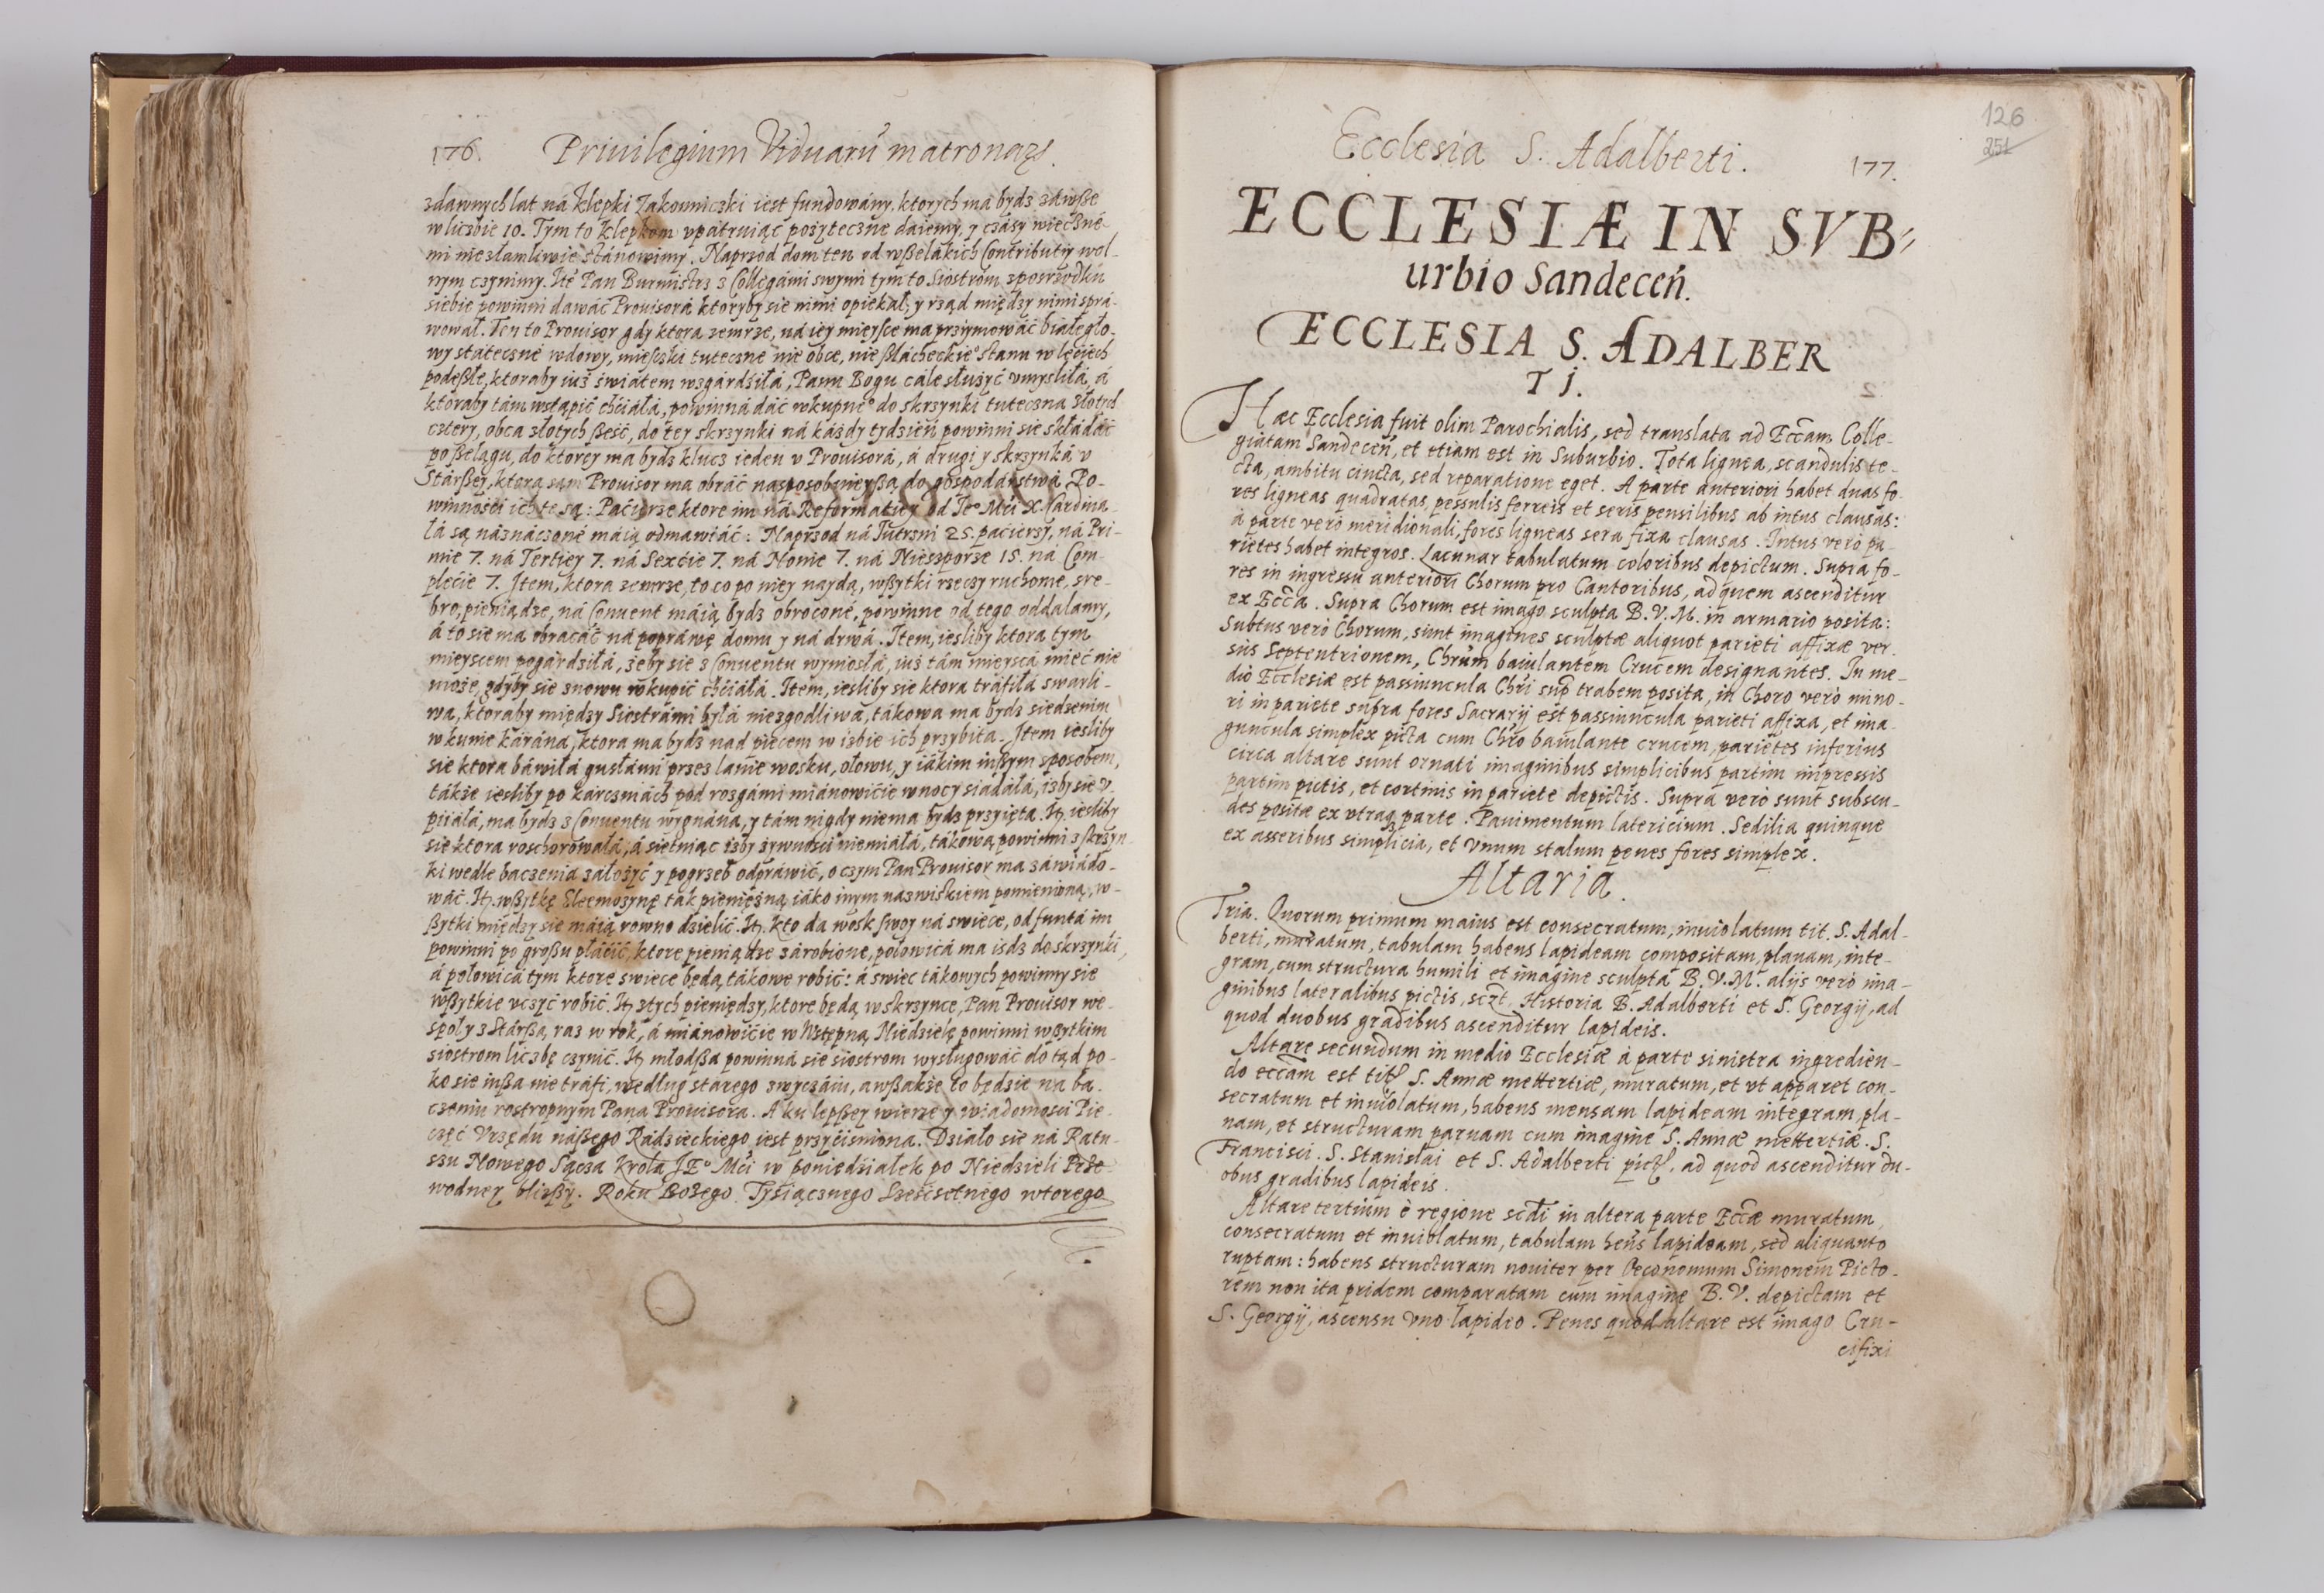 176. Priuilegium Viduarũ matronaꝝ.
zdawnych lat ná klepki Zakonniczki iest fundowány, ktorych má bydz záwße
w liczbie 10. Tym to klepkom vpátruiąc pożyteczne dáiemy, y czásy wieczne-
mi niezłamliwie stánowimy. Naprzod dom ten od wßelákich Contributiy wol-
nym czynimy. Jtẽ Pan Burmistrz z Collegámi swymi tym to Siostrom zposrzodku
siebie powinni dawáć Prouisorá ktoryby sie nimi opiekał, y rząd między nimi sprá-
wował. Ten to Prouisor gdy ktora zemrze, ná iey mieysce ma przyimowáć białegło-
wy státeczne wdowy, mieszki tuteczne nie obce, nie ßlácheckieº stanu w leciech
podeßłe, ktoraby iuż światem wzgárdźiłá, Panu Bogu cále służyć vmysliłá, á
ktoraby tám wstąpić chciáłá, powinná dáć wkupneº do skrzynki tuteczna złotych
cztery, obca złotych ßeść, do tey skrzynki ná káżdy tydzień powinni sie skłádáć
po ßelągu, do ktorey ma bydz klucz ieden v Prouisorá, á drugi y skrzynká v
Stárßey, ktorą sam Prouisor ma obráć nasposobnieyßą do gospodárstwá. Po-
winnosci ich te są: Paćierze ktore im ná Reformaticy od Jeº Mći X. Cardina-
łá są náznáczone máią odmawiáć: Naprzod ná Jutrzni 25. paćierzy, ná Pri-
mie 7. ná Tertiey 7. ná Sexćie 7. ná Nonie 7. ná Nieszporze 15. ná Com-
plećie 7. Jtem, ktora zemrze, to co po niey naydą, wßytki rzeczy ruchome, sre-
bro, pieniądze, ná Conuent máią bydz obrocone, powinne od tego oddalamy,
á to sie ma obracáć ná popráwę domu y ná drwá. Jtem, iesliby ktora tym
mieyscem pogárdziłá, żeby sie z Conuentu wyniosłá, iuż tám mieyscá mieć nie
może, gdyby sie znowu wkupić chćiáłá. Jtem, iesliby sie ktora tráfiłá swarli-
wa, ktoraby między Siostrámi byłá niezgodliwa, tákowa ma bydz siedzeniu
w kunie káránа, ktora ma bydz nad piecem w izbie ich przybita. Jtem iesliby
sie ktora báwiłá gusłámi przez lanie wosku, ołowu, y iákim inßym sposobem,
tákże iesliby po kárczmách pod rozgámi miánowićie w nocy siádáłá, iżby sie v-
piiáłá, ma bydz z Conuentu wygnána, y tám nigdy niema bydz przyięta. Jt. iesliby
sie ktora roschorowáłá, á sietniąc iżby żywnosci niemiáłá, tákową powinni z skrzyn-
ki wedle baczenia záłożyć y pogrzeb odpráwić, o czym Pan Prouisor ma záwiádo-
wáć. Jt. wßytkę Eleemozynę ták pieniężną iáko inym nazwiskiem pomienioną, w-
ßytki między sie máią rowno dzielić. Jt. kto da wosk swoy ná swiece, od funtá im
powinni po großu płáćić, ktore pieniądze zárobione, połowicá ma iśdz do skrzynki,
á połowicá tym ktore swiece będą tákowe robić: á swiec tákowych powinny sie
wßytkie vczyć robić. Jt. z tych pieniędzy, ktore będą w skrzynce, Pan Prouisor we-
społy z Stárßą, raz w rok, á miánowićie w Wstępną Niedzielę powinni wßytkim
siostrom liczbę czynić. Jt. młodßa powinná sie siostrom wysługowáć do tąd po-
ko sie inßa nie tráfi, według starego zwyczáiu, á wßakże to będzie na ba-
czeniu rostropnym Pana Prouisora. A ku lepßey wierze y wiádomosci Pie-
częć Vrzędu náßego Rádzieckiego iest przyćisniona. Dziáło sie ná Ratu-
szu Nowego Sącza Krola JEº Mći w poniedziałek po Niedzieli Prze-
wodney blizßy. Roku Bożego Tysiącznego Szescsetnego wtorego
126
251
Ecclesia S. Adalberti. 177.
ECCLESIÆ IN SVB-
urbio Sandeceń.
ECCLESIA S. ADALBER
TI.
Hæc Ecclesia fuit olim Parochialis, sed translata ad Eccãm Colle-
giatam Sandeceń, et etiam est in Suburbio. Tota lignea, scandulis te-
cta, ambitu cincta, sed reparatione eget. A parte anteriori habet duas fo-
res ligneas quadratas, pessulis ferreis et seris pensilibus ab intus clausas:
à parte verò meridionali, fores ligneas sera fixa clausas. Intus verò pa-
rietes habet integros. Lacunar tabulatum coloribus depictum. Supra fo-
res in ingressu anteriori Chorum pro Cantoribus, ad quem ascenditur
ex Eccã. Supra Chorum est imago sculpta B. V. M. in armario posita:
Subtus verò Chorum, sunt imagines sculptæ aliquot parieti affixæ ver-
sus Septentrionem, Chrũm baiulantem Crucem designantes. In me-
dio Ecclesiæ est passiuncula Chri sup̃ trabem posita, in Choro verò mino-
ri in pariete supra fores Sacrarij est passiuncula parieti affixa, et ima-
guncula simplex picta cum Chro baiulante crucem, parietes inferius
circa altare sunt ornati imaginibus simplicibus partim impressis
partim pictis, et cortinis in pariete depictis. Supra verò sunt subscu-
des positæ ex vtraq parte. Pauimentum latericium. Sedilia quinque
ex asseribus simplicia, et vnum stalum penes fores simplex.
Altaria.
Tria. Quorum primum maius est consecratum, inuiolatum tit. S. Adal-
berti, muratum, tabulam habens lapideam compositam, planam, inte-
gram, cum structura humili et imagine sculpta B. V. M. alijs verò ima-
ginibus lateralibus pictis, sczt Historia B. Adalberti et S. Georgij, ad
quod duobus gradibus ascenditur lapideis.
Altare secundum in medio Ecclesiæ à parte sinistra ingredien-
do eccãm est titꝉ S. Annæ mettertiæ, muratum, et vt apparet con-
secratum et inuiolatum, habens mensam lapideam integram, pla-
nam, et structuram paruam cum imagine S. Annæ mettertiæ. S.
Francisci. S. Stanislai et S. Adalberti pictꝭ, ad quod ascenditur du-
obus gradibus lapideis.
Altare tertium è regione scdi in altera parte Eccæ muratum,
consecratum et inuiolatum, tabulam hens lapideam, sed aliquanto
ruptam: habens structuram nouiter per Oeconomum Simonem Picto-
rem non ita pridem comparatam cum imagine B. V. depictam et
S. Georgij, ascensu vno lapideo. Penes quod altare est imago Cru-
cifixi